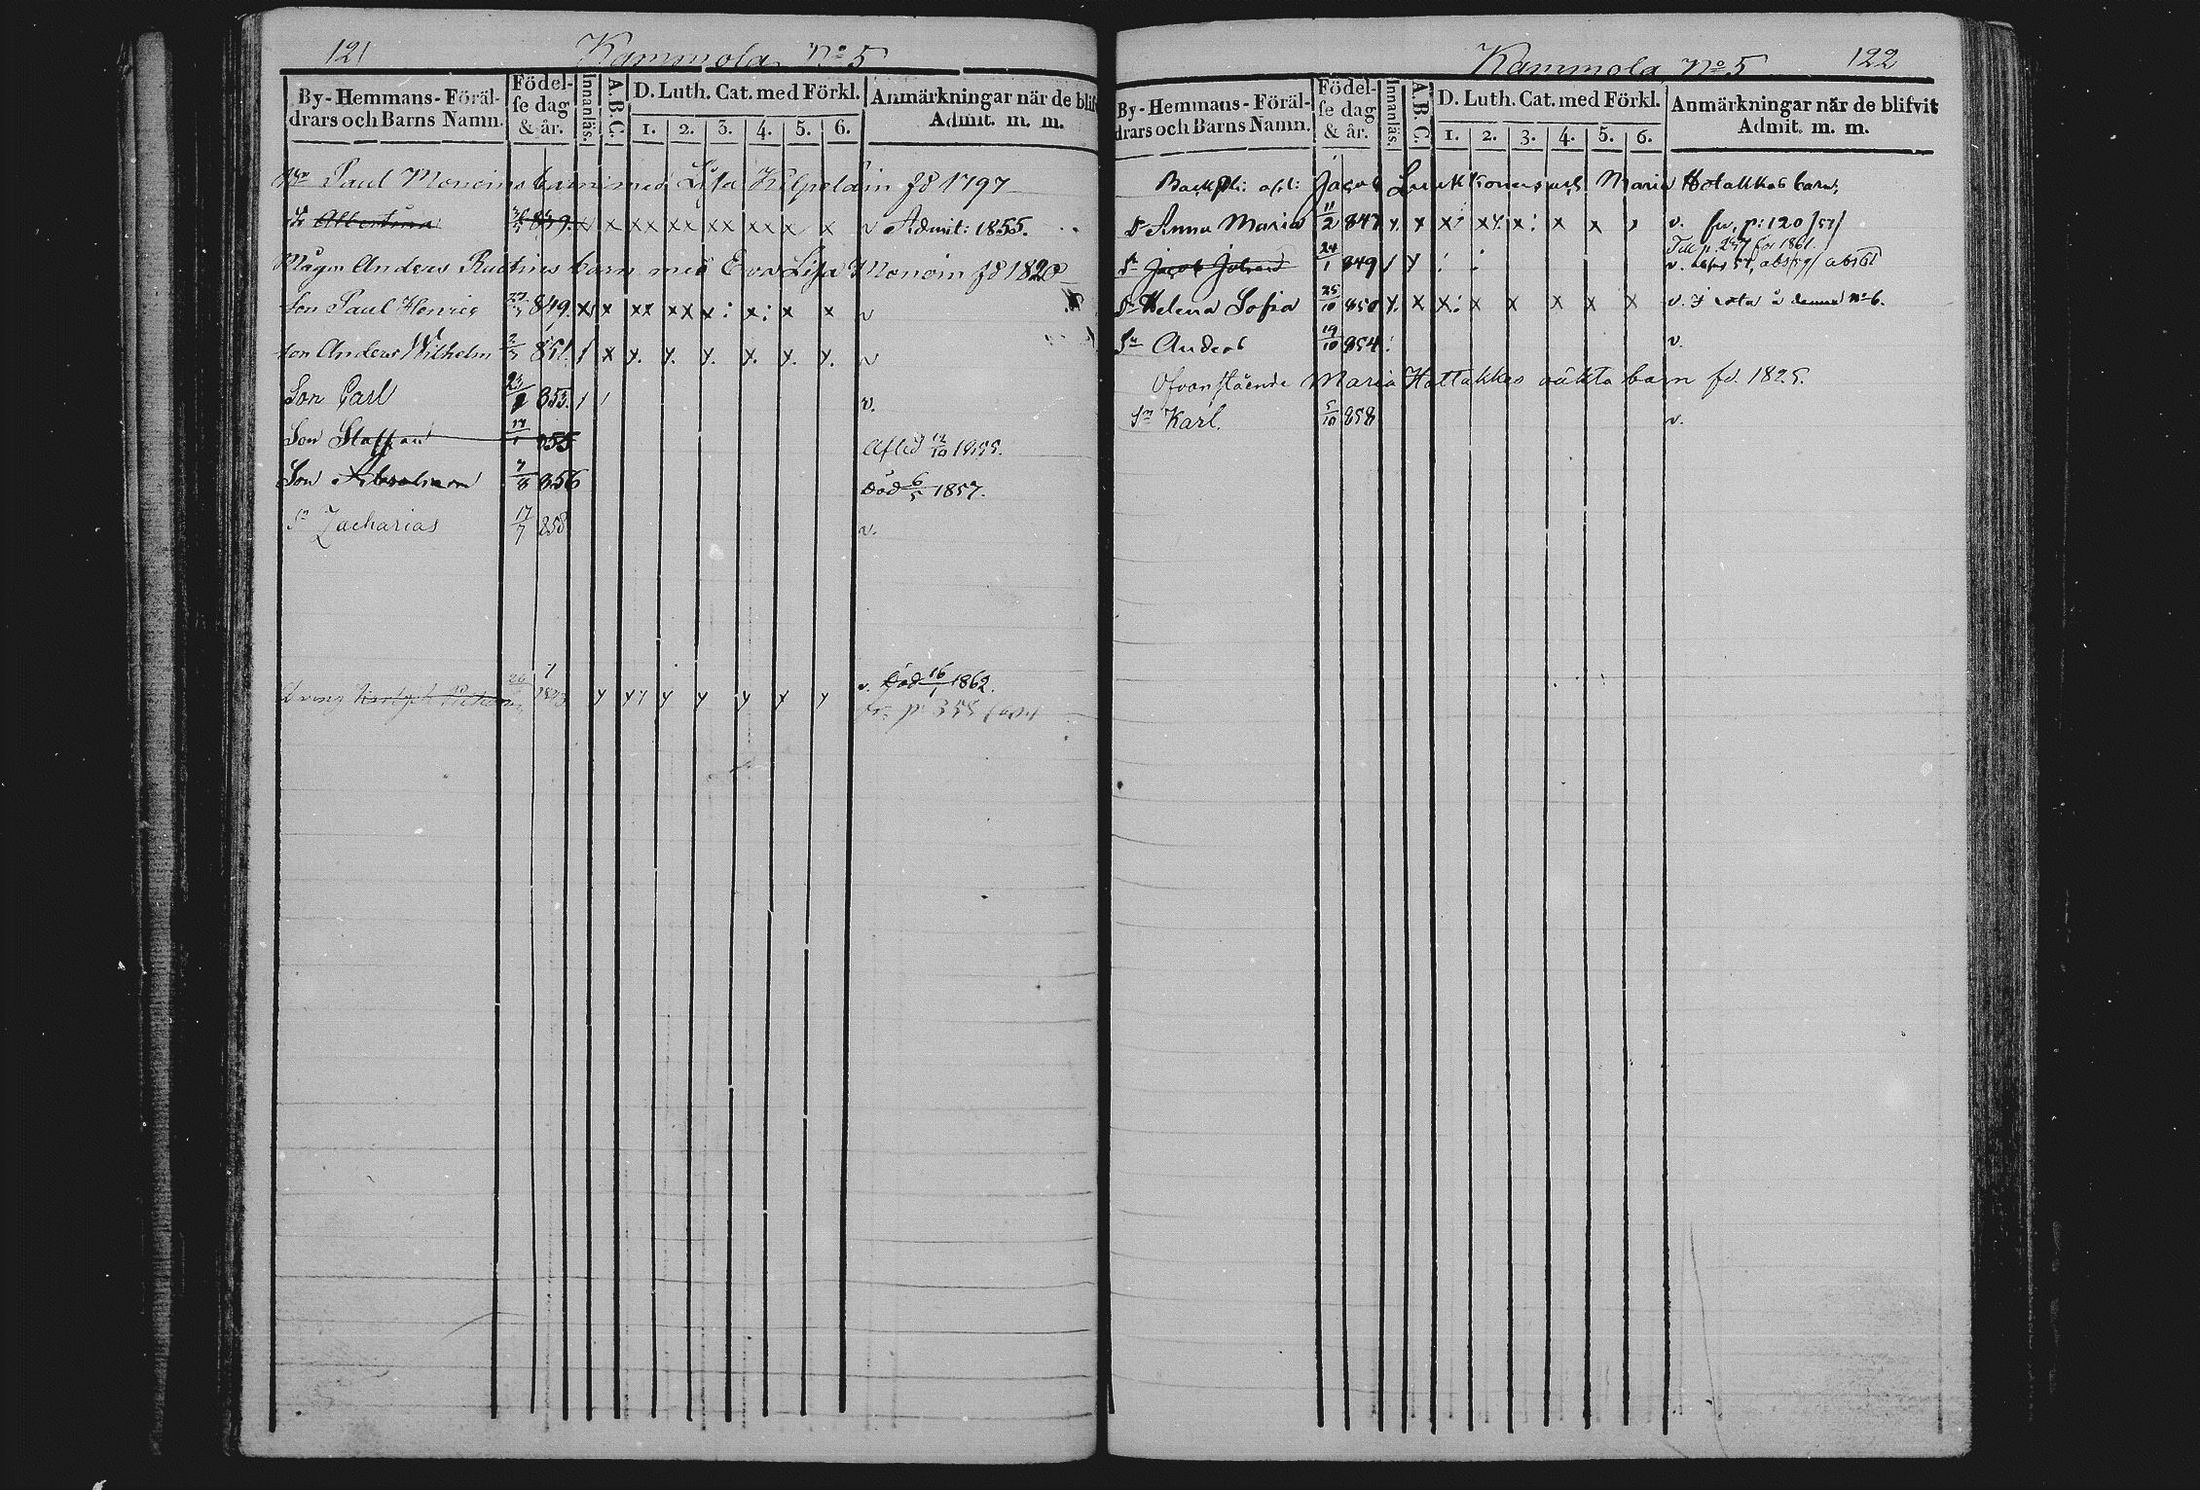 121 Kammola No 5
By-Hemmans-Föräl-
drars och Barns Namn.
Födel-
se dag
& år.
Innanläs.
A.B.C.
D. Luth. Cat. med Förkl.
1. 2. 3. 4. 5. 6.
Anmärkningar när de blif
Admit. m. m.
Paul Monoins barn med Lisa Kilpeläin fd 1797
Albertina 839. x x xx xx xx xx x x v Admit: 1855.
Mågen Anders Ruotins barn med Eva Lisa Monoin fd 1820
Son Paul Henric 849. x x xx xx x: x: x x v
Son Anders Wilhelm 851. / x y. y. y. y. y. y. v
Son Carl 853. / / v.
Son Staffan 17/1 855 Afled 12/10 1855.
Son Abraham 7/8 856 Död 6/5 1857.
Sn Zacharias 17/7 858 v.
Dreng 26 y yy y y y y y v. Död 16/1 1862.
fr. p. 355
Kammola No 5 122
By-Hemmans-Föräl-
drars och Barns Namn.
Födel-
se dag
& år.
Innanläs.
A.B.C.
D. Luth. Cat. med Förkl.
1. 2. 3. 4. 5. 6.
Anmärkningar när de blifvit
Admit. m. m.
Jacob Luukkoinens och Maria Hotakkas barn,
Dr Anna Maria 11/2 847 y. x x: xy. x: x x , v. fr. p: 120 /57/
Till p. 257 för 1861.
Sn Jacob Johan 24/1 849 / y : : v.
Dr Helena Sofia 25/10 850 y. x x: x x x x x v. I rota å denna No 6.
Sn Anders 19/10 854 : v.
Ofvanstående Maria Hottakkas oäkta barn fd. 1825.
Sn Karl. 5/10 858 v.